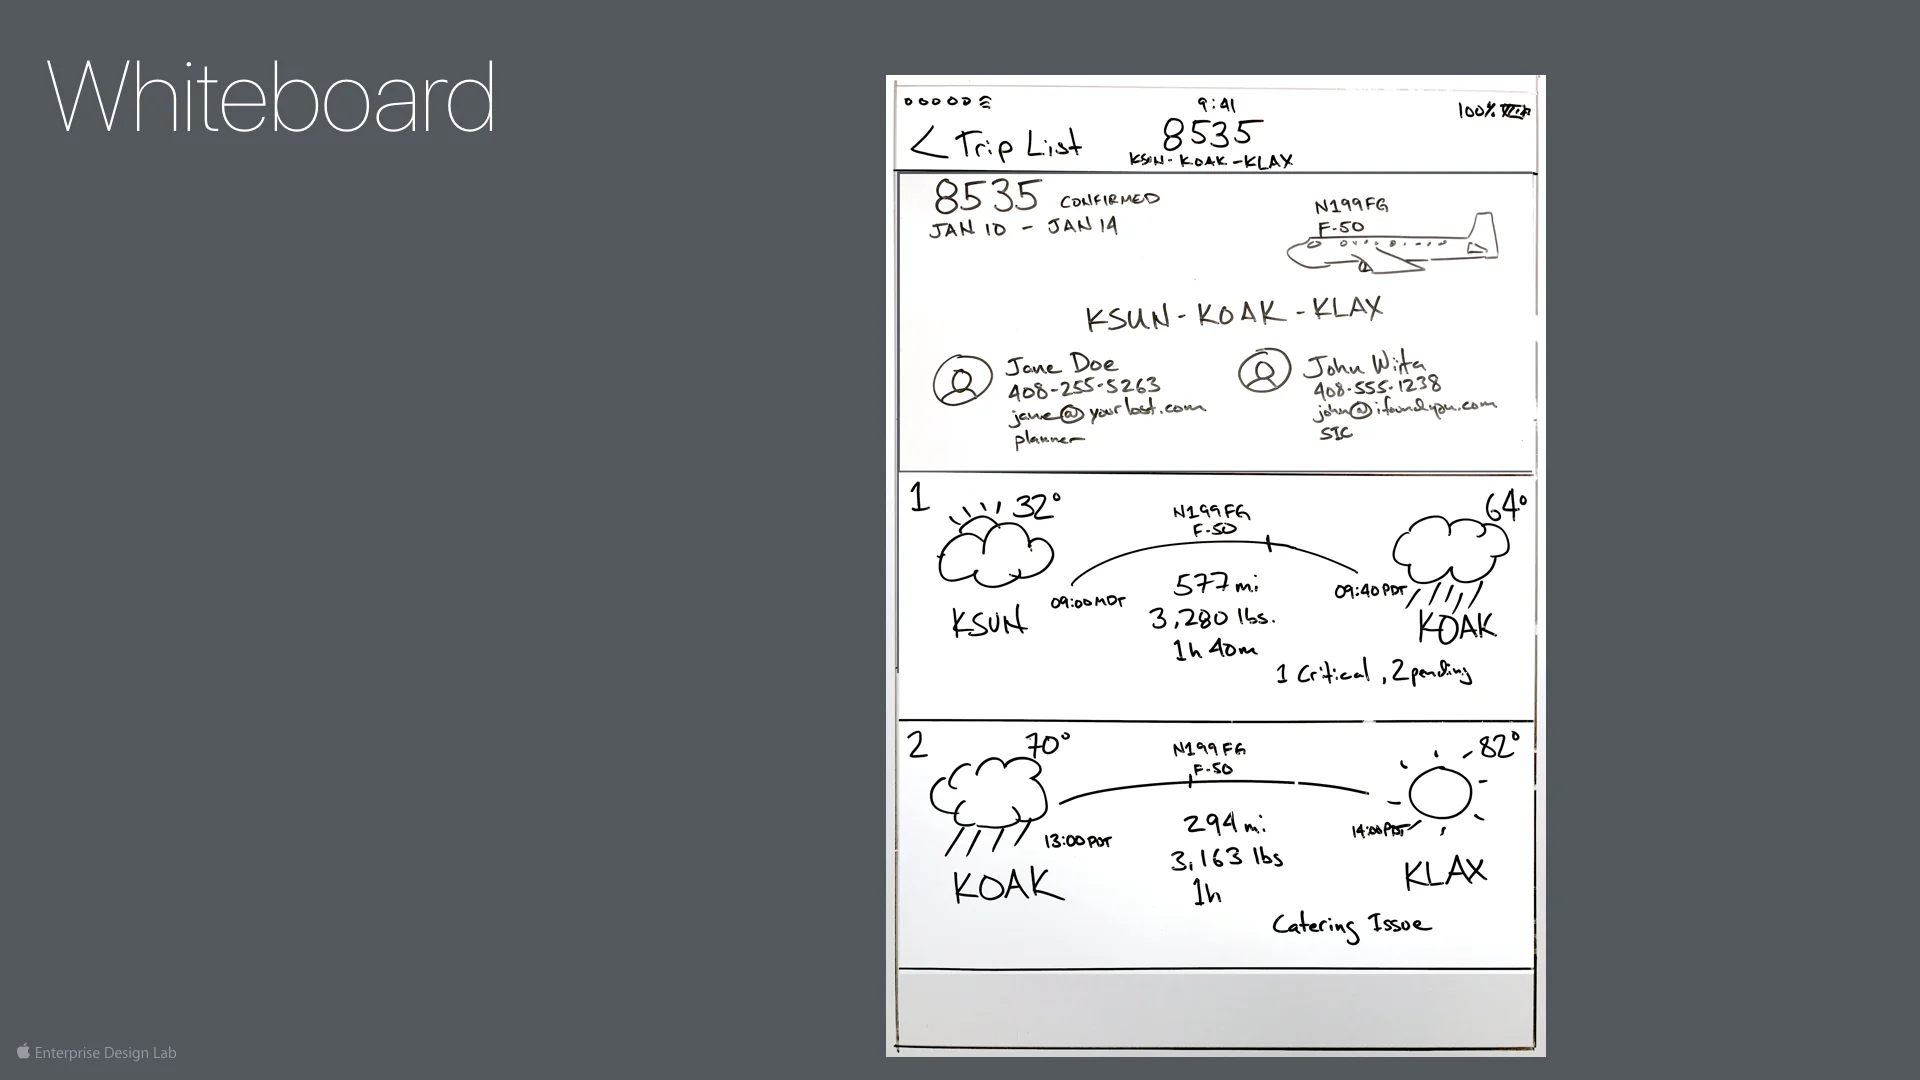 Whiteboard
9:41
100%
< Trip List
8535
KSUN - KOAK - KLAX
8535 CONFIRMED
JAN 10 - JAN 14
N199FG
F-50
KSUN - KOAK - KLAX
Jane Doe
408-255-5263
jane@yourlost.com
planner
John Wirta
408-555-1238
john@ifoundyou.com
SIC
1
32°
N199FG
F-50
64°
577 mi
09:00 MDT
09:40 PDT
3,280 lbs.
KSUN
KOAK
1h 40m
1 Critical, 2 pending
2
70°
N199FG
F-50
82°
294 mi
13:00 PDT
14:00 PDT
3,163 lbs
KOAK
KLAX
1h
Catering Issue
Enterprise Design Lab